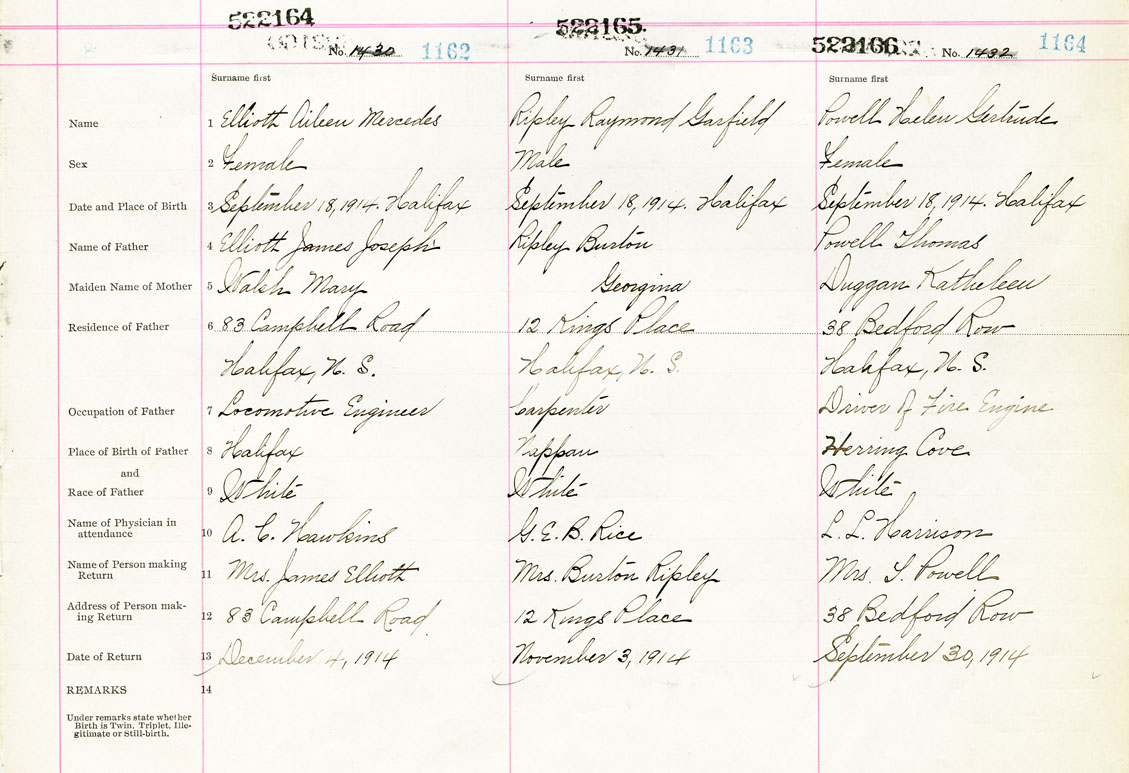 522164 522165. 522166
No. 1430 1162 No. 1431 1163 No. 1432 1164
Surname first Surname first Surname first
Name 1 Elliott Aileen Mercedes Ripley Raymond Garfield Powell Helen Gertrude
Sex 2 Female Male Female
Date and Place of Birth 3 September 18, 1914. Halifax September 18, 1914. Halifax September 18, 1914. Halifax
Name of Father 4 Elliott James Joseph Ripley Burton Powell Thomas
Maiden Name of Mother 5 Walsh Mary Georgina Duggan Katheleen
Residence of Father 6 83 Campbell Road 12 Kings Place 38 Bedford Row
Halifax, N. S. Halifax, N. S. Halifax, N. S.
Occupation of Father 7 Locomotive Engineer Carpenter Driver of Fire Engine
Place of Birth of Father 8 Halifax Nappan Herring Cove
and
Race of Father 9 White White White
Name of Physician in
attendance 10 A. C. Hawkins G. E. B. Rice L. L. Harrison
Name of Person making
Return 11 Mrs. James Elliott Mrs. Burton Ripley Mrs. T. Powell
Address of Person mak-
ing Return 12 83 Campbell Road 12 Kings Place 38 Bedford Row
Date of Return 13 December 4, 1914 November 3, 1914 September 30, 1914
REMARKS 14
Under remarks state whether
Birth is Twin, Triplet, Ille-
gitimate or Still-birth.